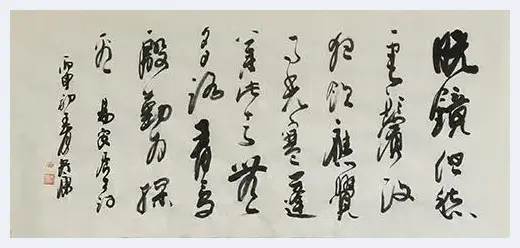 曉鏡但愁
雲鬢改
夜吟應覺
月光寒蓬
山此去無
多路青鳥
殷勤為探
看
丙申初夏